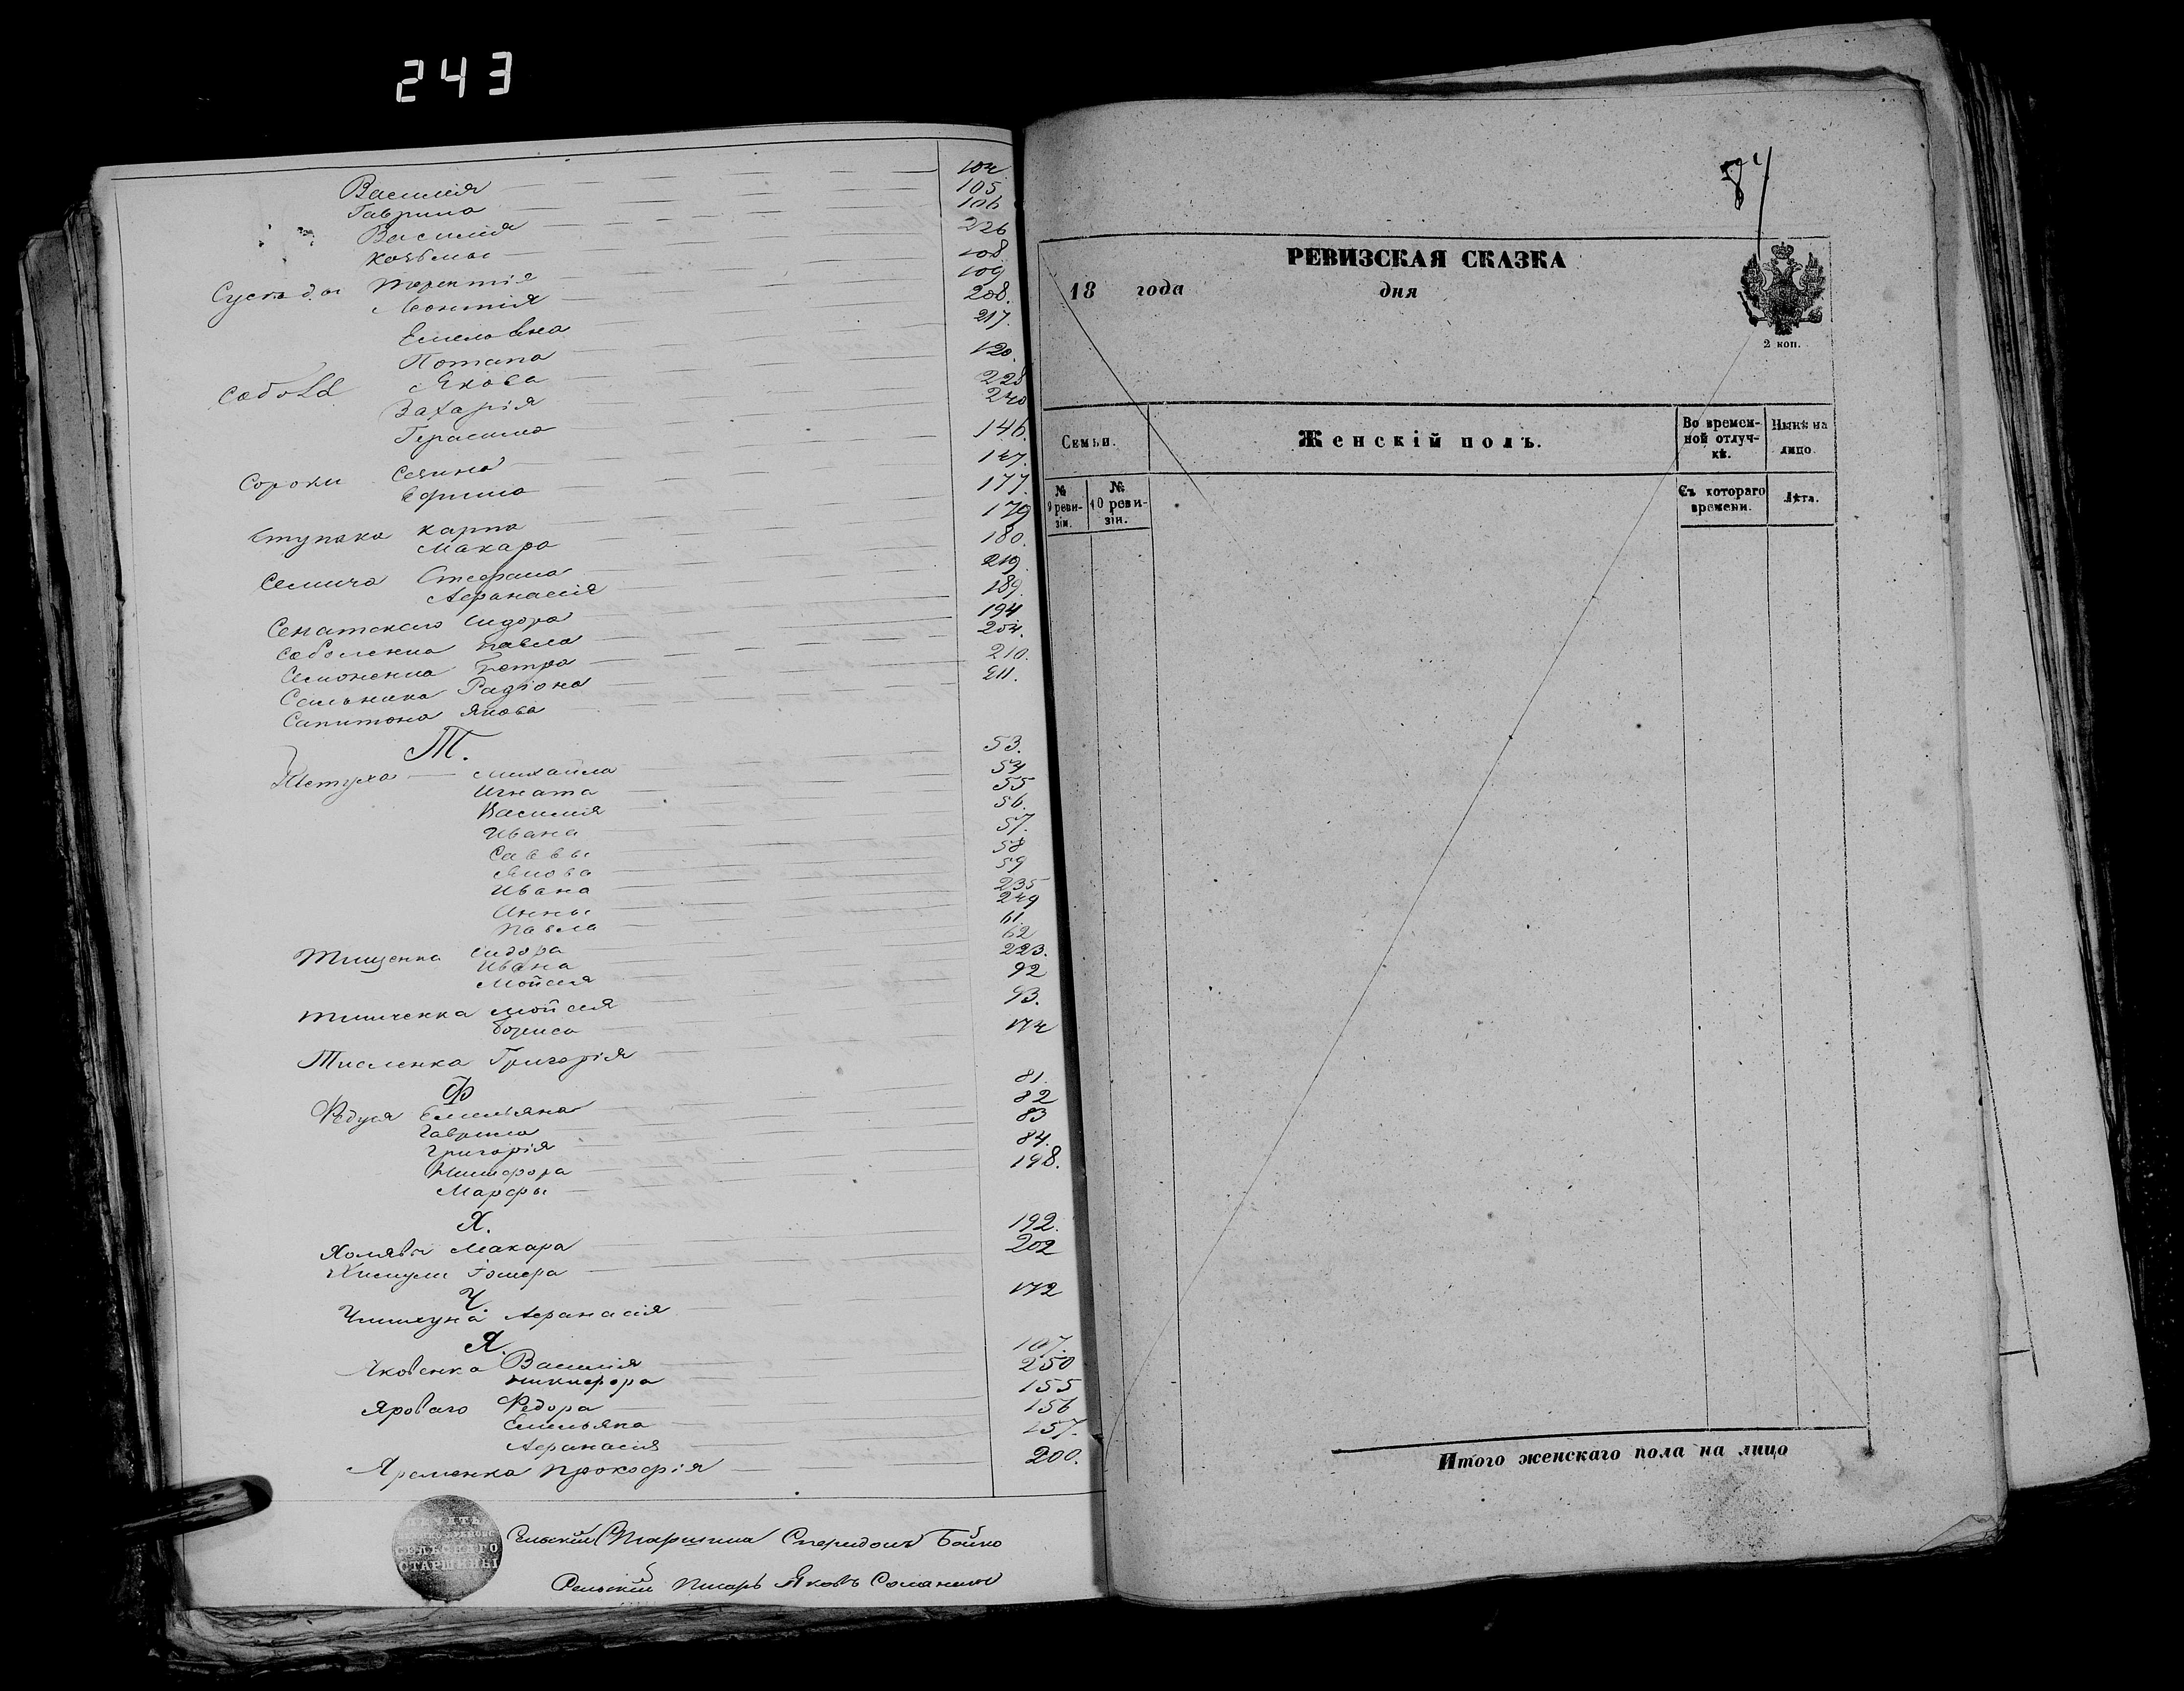 243
Василія 104
Гаврила 105
Василія 106
Козьмы 226
Суптеля Терентія 108
Леонтія 109
Емельяна 208.
Потапа 217.
Якова 120.
Захарія 228
Герасима 240
Сороки 146.
Ефима 147.
Ступака Карпа 177.
Макара 179
Семича Стефана 180.
Афанасія 219.
Сидора 189.
Соболенка Павла 194
Семоненка Петра 204.
Сальника Радіона 210.
Сапитона Якова 211.
Т.
Михайла 53.
Игната 54
Василія 55
Ивана 56.
Саввы 57.
Якова 58
Ивана 59
Анны 235
Павла 249
Тищенка Сидора 61.
Ивана 62
Мойсея 223.
Тимченка Мойсея 92
Бориса 93.
Тисленка Григорія 174
Ф
Федуся Емельяна 81.
Гаврила 82
Григорія 83
Никифора 84.
Марфы 198.
Х.
Холявы Макара 192.
202
Ч.
Чишкуна Афанасія 172
Я.
Яковенка Василія 107.
Никифора 250
Яроваго Федора 155
Емельяна 156
Афанасія 157.
Яременка Прокофія 200.
ПЕЧАТЬ
СЕЛЬСКАГО
СТАРШИНЫ
Сельский Старшина Спиридонъ Бойко
Сельский Писарь Яковъ
84
РЕВИЗСКАЯ СКАЗКА
18 года дня
2 коп.
Семьи.
Женскій полъ.
Во временной отлучкѣ.
Нынѣ на лицо.
№ 9 ревизіи.
№ 10 ревизіи.
Съ котораго времени.
Лѣта.
Итого женскаго пола на лицо